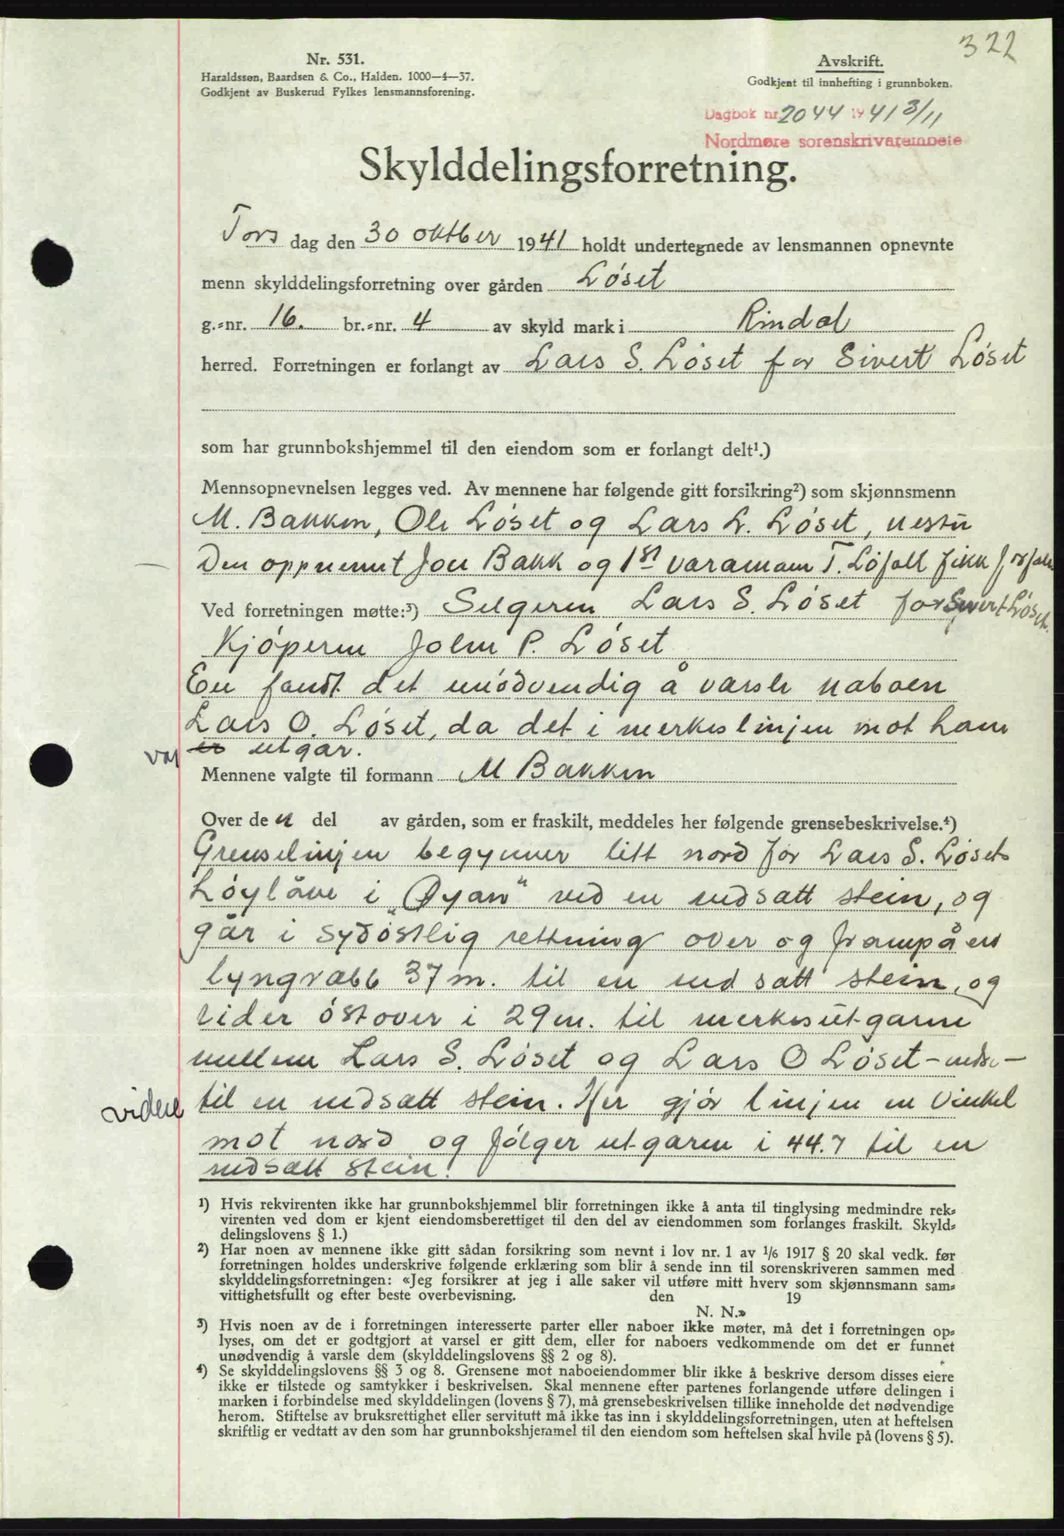 322
Nr. 531.
Haraldssøn, Baardsen & Co., Halden. 1000—4—37.
Godkjent av Buskerud Fylkes lensmannsforening.
Avskrift.
Godkjent til innhefting i grunnboken.
Dagbok nr. 2044 1941 3/11
Nordmøre sorenskriverembete
Skylddelingsforretning.
Tors dag den 30 oktber 1941 holdt undertegnede av lensmannen opnevnte
menn skylddelingsforretning over gården Løset
g.-nr. 16. br.-nr. 4 av skyld mark i Rindal
herred. Forretningen er forlangt av Lars S. Løset for Sivert Løset
som har grunnbokshjemmel til den eiendom som er forlangt delt¹.)
Mennsopnevnelsen legges ved. Av mennene har følgende gitt forsikring²) som skjønnsmenn
M. Bakken, Ole Løset og Lars L. Løset,
Den oppnemnt Jon Bakk og 1st varamann T. Løfall fikk forfall
Ved forretningen møtte:³) Selgeren Lars S. Løset for Sivert Løset.
Kjøperen John P. Løset
En fandt det unødvendig å varsle naboen
Lars O. Løset, da det i merkeslinjen mot ham
var er utgar.
Mennene valgte til formann M Bakken
Over de n del av gården, som er fraskilt, meddeles her følgende grensebeskrivelse.⁴)
Grenselinjen begynner litt nord for Lars S. Løsets
Løylåve i „Øyan" ved en nedsatt stein, og
går i sydøstlig rettning over og frampå en
lyngrabb 37 m. til en ned satt stein, og
vider østover i 29 m. til merkesutgarne
mellem Lars S. Løset og Lars O Løset –
videre til en nedsatt stein. Her gjør linjen en vinkel
mot nord og følger utgaren i 44.7 til en
nedsatt stein.
¹) Hvis rekvirenten ikke har grunnbokshjemmel blir forretningen ikke å anta til tinglysing medmindre rek-
virenten ved dom er kjent eiendomsberettiget til den del av eiendommen som forlanges fraskilt. Skyld-
delingslovens § 1.)
²) Har noen av mennene ikke gitt sådan forsikring som nevnt i lov nr. 1 av 1/6 1917 § 20 skal vedk. før
forretningen holdes underskrive følgende erklæring som blir å sende inn til sorenskriveren sammen med
skylddelingsforretningen: «Jeg forsikrer at jeg i alle saker vil utføre mitt hverv som skjønnsmann sam-
vittighetsfullt og efter beste overbevisning. den 19
N. N.»
³) Hvis noen av de i forretningen interesserte parter eller naboer ikke møter, må det i forretningen op-
lyses, om det er godtgjort at varsel er gitt dem, eller for naboers vedkommende om det er funnet
unødvendig å varsle dem (skylddelingslovens §§ 2 og 8).
⁴) Se skylddelingslovens §§ 3 og 8. Grensene mot naboeiendommer blir ikke å beskrive dersom disses eiere
ikke er tilstede og samtykker i beskrivelsen. Skal mennene efter partenes forlangende utføre delingen i
marken i forbindelse med skylddelingen (lovens § 7), må grensebeskrivelsen tillike inneholde det nødvendige
herom. Stiftelse av bruksrettighet eller servitutt må ikke tas inn i skylddelingsforretningen, uten at heftelsen
skriftlig er vedtatt av den som har grunnbokshjemmel til den eiendom som heftelsen skal hvile på (lovens § 5).